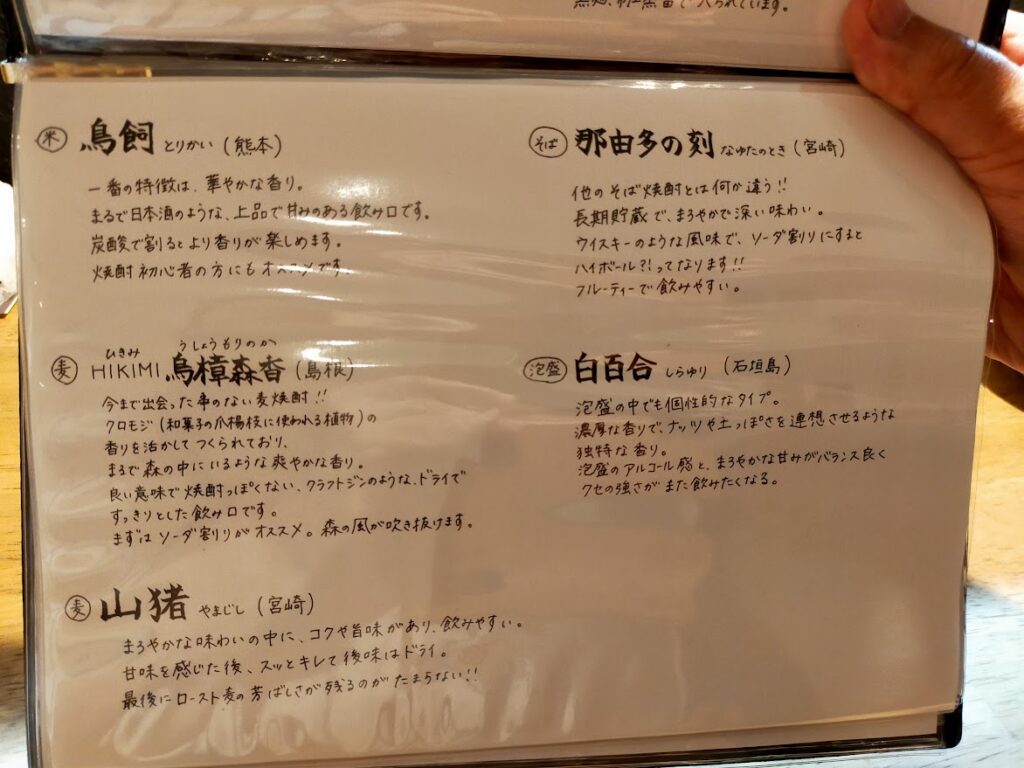 黒麹、紅黒菌で入られています。
米 鳥飼 とりかい (熊本)
一番の特徴は、華やかな香り。
まるで日本酒のような、上品で甘みのある飲み口です。
炭酸で割るとより香りが楽しめます。
焼酎初心者の方にもオススメです。
ひきみ うしょうもりのか
麦 HIKIMI 烏樟森香 (島根)
今まで出会った事のない麦焼酎!!
クロモジ(和菓子の爪楊枝に使われる植物)の
香りを活かしてつくられており、
まるで森の中にいるような爽やかな香り。
良い意味で焼酎っぽくない、クラフトジンのような、ドライで
すっきりとした飲み口です。
まずはソーダ割りがオススメ。森の風が吹き抜けます。
麦 山猪 やまじし (宮崎)
まろやかな味わいの中に、コクや旨味があり、飲みやすい。
甘味を感じた後、スッとキレて後味はドライ。
最後にロースト麦の芳ばしさが残るのがたまらない!!
そば 那由多の刻 なゆたのとき (宮崎)
他のそば焼酎とは何か違う!!
長期貯蔵で、まろやかで深い味わい。
ウイスキーのような風味で、ソーダ割りにすると
ハイボール?!ってなります!!
フルーティーで飲みやすい。
泡盛 白百合 しらゆり (石垣島)
泡盛の中でも個性的なタイプ。
濃厚な香りで、ナッツや土っぽさを連想させるような
独特な香り。
泡盛のアルコール感と、まろやかな甘みがバランス良く
クセの強さがまた飲みたくなる。